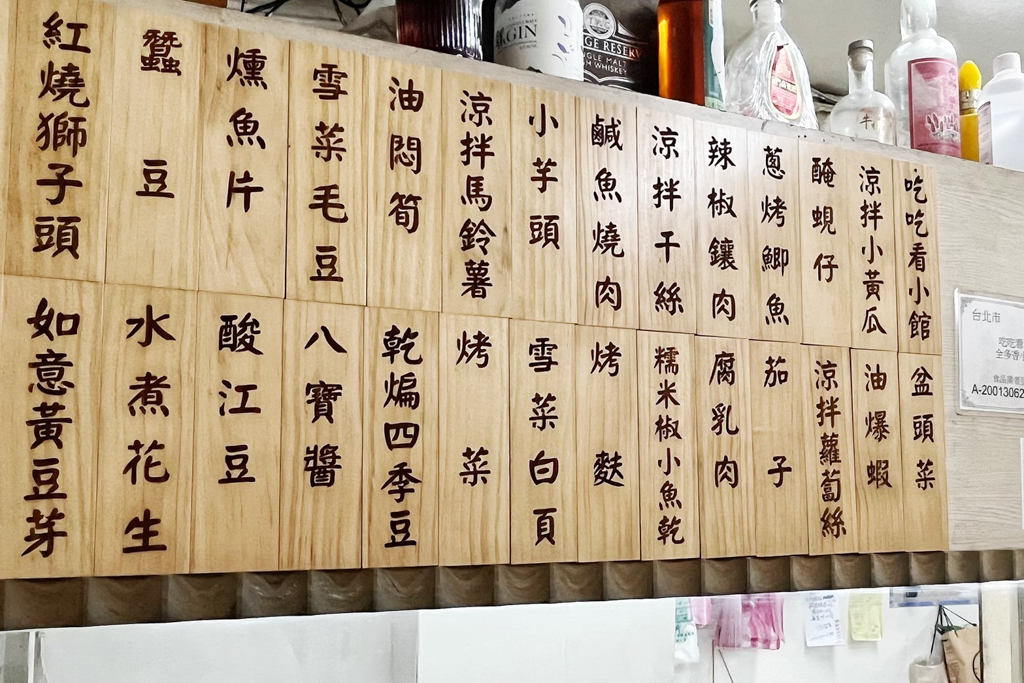 吃吃看小館
涼拌小黃瓜
醃蜆仔
蔥烤鯽魚
辣椒鑲肉
涼拌干絲
鹹魚燒肉
小芋頭
涼拌馬鈴薯
油悶筍
雪菜毛豆
燻魚片
蠶豆
紅燒獅子頭
盆頭菜
油爆蝦
涼拌蘿蔔絲
茄子
腐乳肉
糯米椒小魚乾
烤麩
雪菜白頁
烤菜
乾煸四季豆
八寶醬
酸江豆
水煮花生
如意黃豆芽
GIN
RESERVE
SINGLE MALT
WHISKEY
台北市
A-20013062